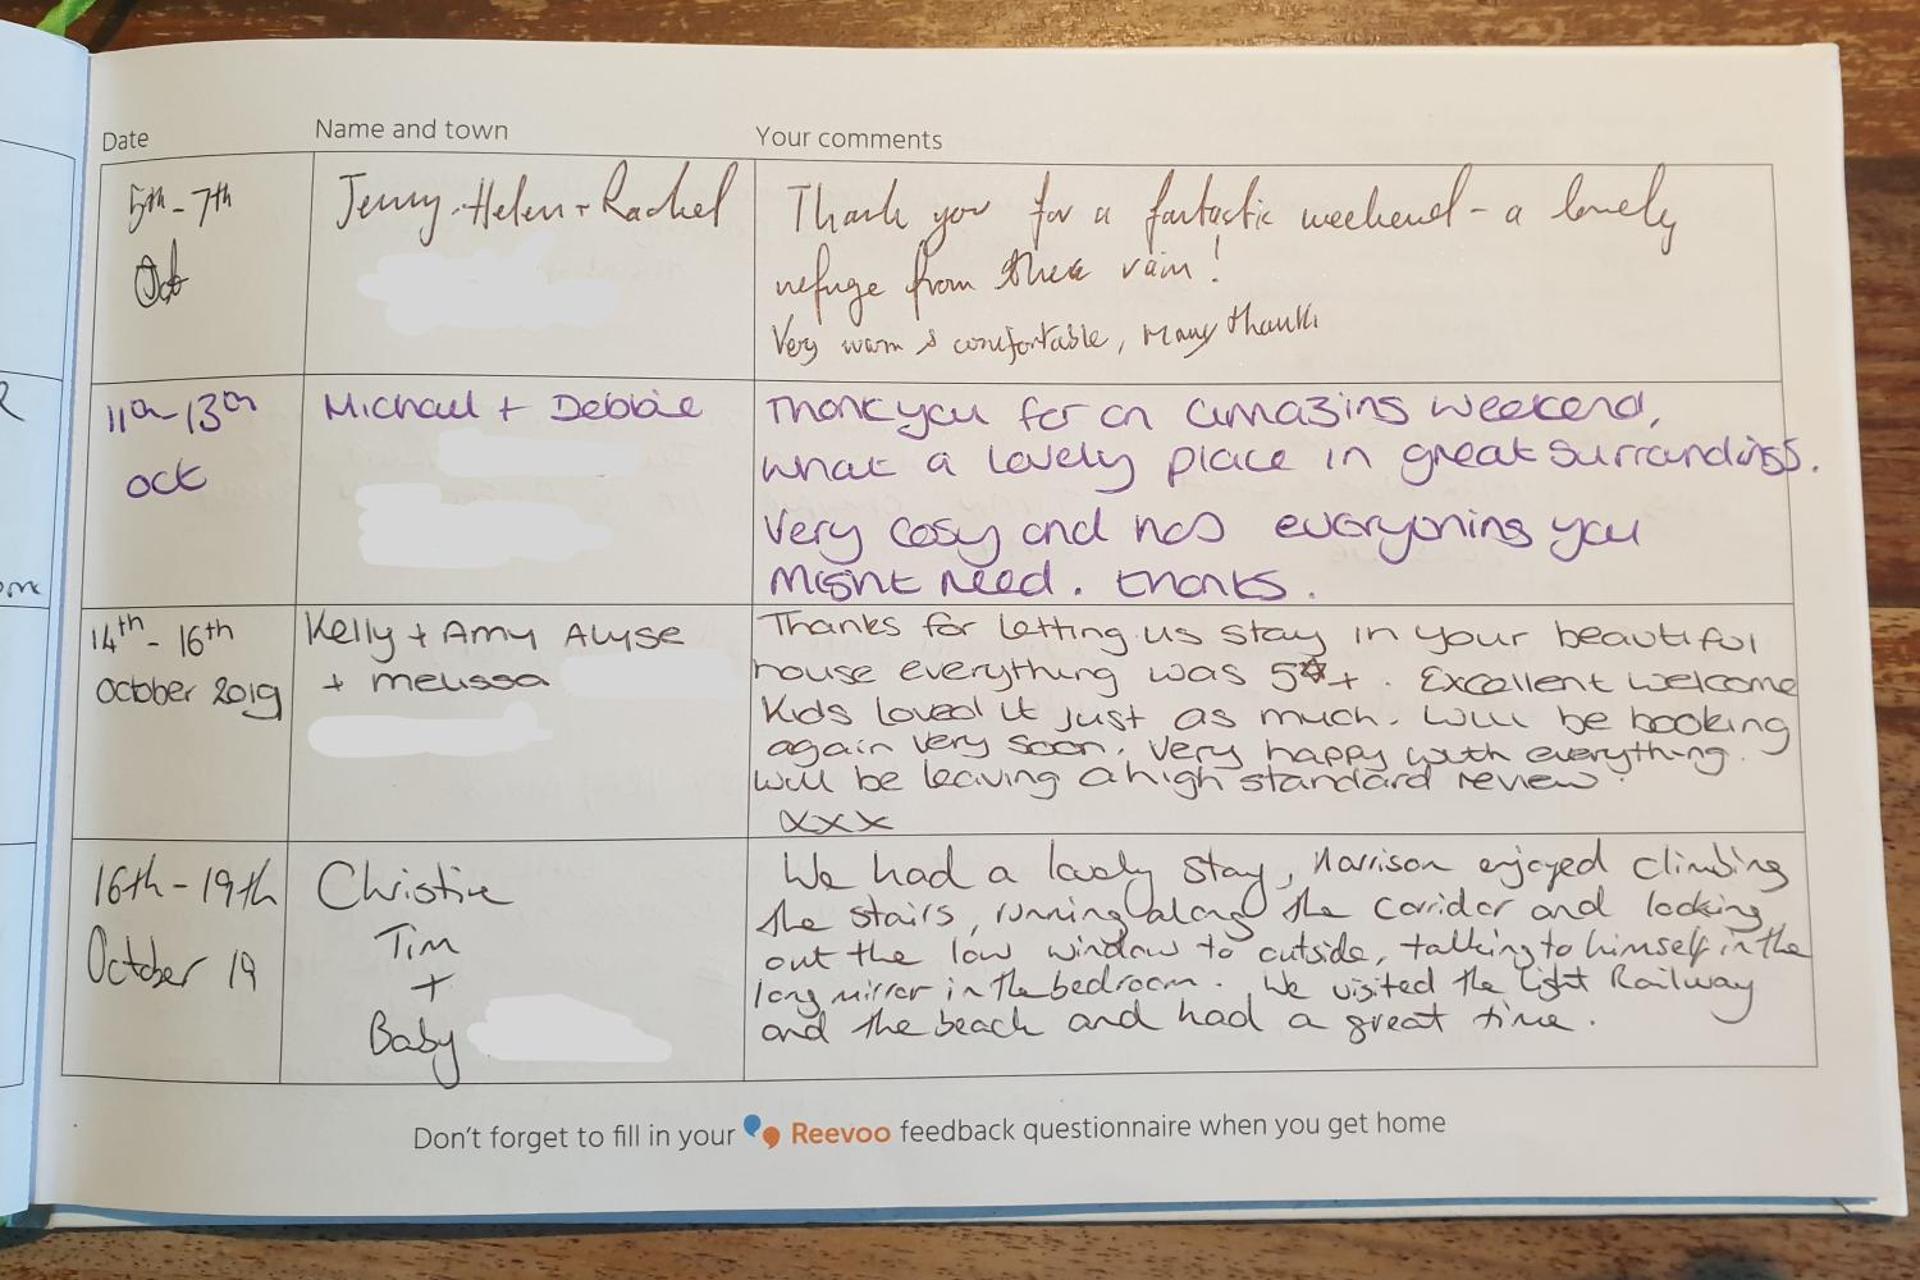 Date
Name and town
Your comments
5th - 7th
Oct
Jenny, Helen + Rachel
Thank you for a fantastic weekend - a lovely
refuge from the rain!
Very warm & comfortable, Many thanks
11th-13th
oct
Michael + Debbie
Thankyou for an amazing weekend,
what a lovely place in great surrandings.
Very cosy and has everything you
might need. thanks.
14th - 16th
October 2019
Kelly + Amy Alyse
+ melissa
Thanks for letting us stay in your beautiful
house everything was 5☆+. Excellent welcome
Kids loved it just as much. Will be booking
again very soon. Very happy with everything.
will be leaving a high standard review.
xxx
16th - 19th
October 19
Christine
Tim
+
Baby
We had a lovely stay, Harrison enjoyed climbing
the stairs, running along the corridor and looking
out the low window to outside, talking to himself in the
long mirror in the bedroom. We visited the Light Railway
and the beach and had a great time.
Don't forget to fill in your Reevoo feedback questionnaire when you get home